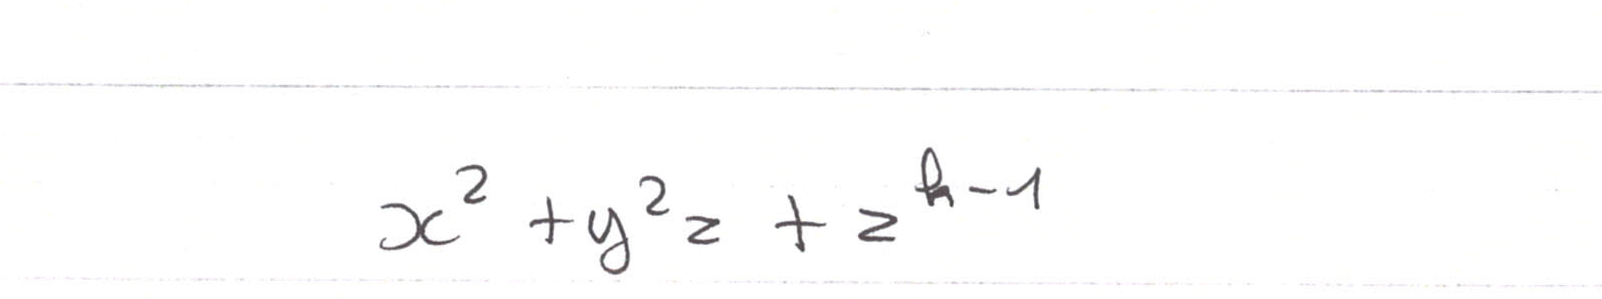 x² + y²z + z^{k-1}